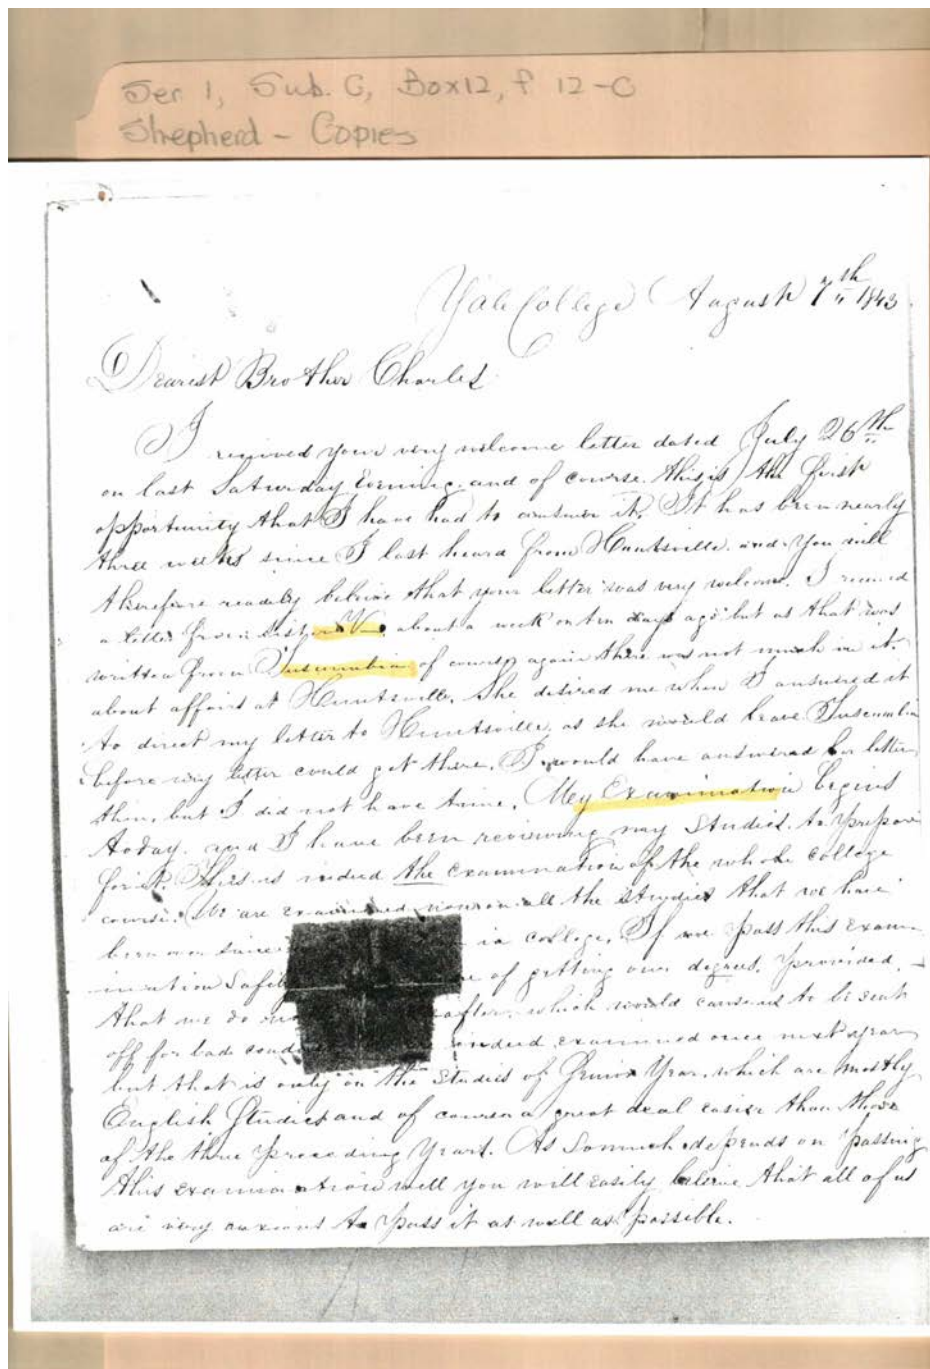 Ser 1, Sub. C, Box 12, f 12-C
Shepherd - Copies
Yale College August 7th 1843
Dearest Brother Charles
I received your very welcome letter dated July 26th
on last Saturday Evening. and of course this is the first
opportunity that I have had to answer it. It has been nearly
three weeks since I last heard from Huntsville. and you will
therefore readily believe that your letter was very welcome. I received
a letter from sister about a week or ten days ago but as that was
written from Tuscumbia of course again there was not much in it.
about affairs at Huntsville. She desired me when I answered it
to direct my letter to Huntsville, as she would leave Tuscumbia
before my letter could get there. I would have answered her letter
then, but I did not have time. My Examination begins
today. and I have been reviewing my Studies. to prepare
for it. This is indeed the examination of the whole college
course. We are examined all the studies that we have
been over since in college. If we pass this exam-
ination Safely of getting our degrees. provided. -
that we do after. which would cause us to be sent
off for bad indeed examined once next year
but that is only on the Studies of Year. which are mostly
English Studies and of course a great deal easier than those
of the three preceding Years. As so much depends on passing
this examination well you will easily believe that all of us
are very anxious to pass it as well as possible.